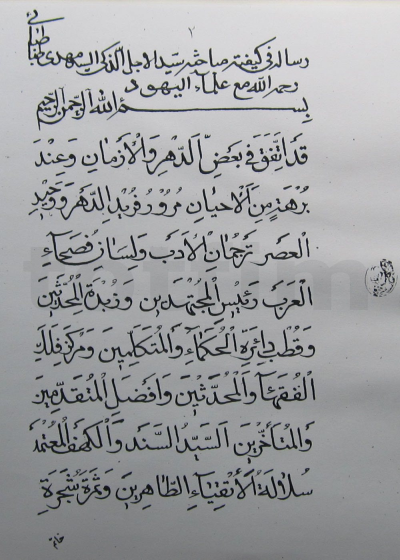 ١
رساله في كيفية مباحثه سيد الاجل الزكي السيد مهدي طباطبائي
رحمه الله مع علماء اليهود
بسم الله الرحمن الرحيم
قد اتفق في بعض الدهر والأزمان وعند
برهة من الاحيان مرور فريد الدهر ووحيد
العصر ترجمان الأدب ولسان فصحاء
العرب رئيس المجتهدين وزبدة المحدثين
وقطب دائرة الحكماء والمتكلمين ومركز فلك
الفقهاء والمحدثين وافضل المتقدمين
والمتأخرين السيد السند والكهف المعتمد
سلالة الأتقياء الطاهرين وثمرة شجرة